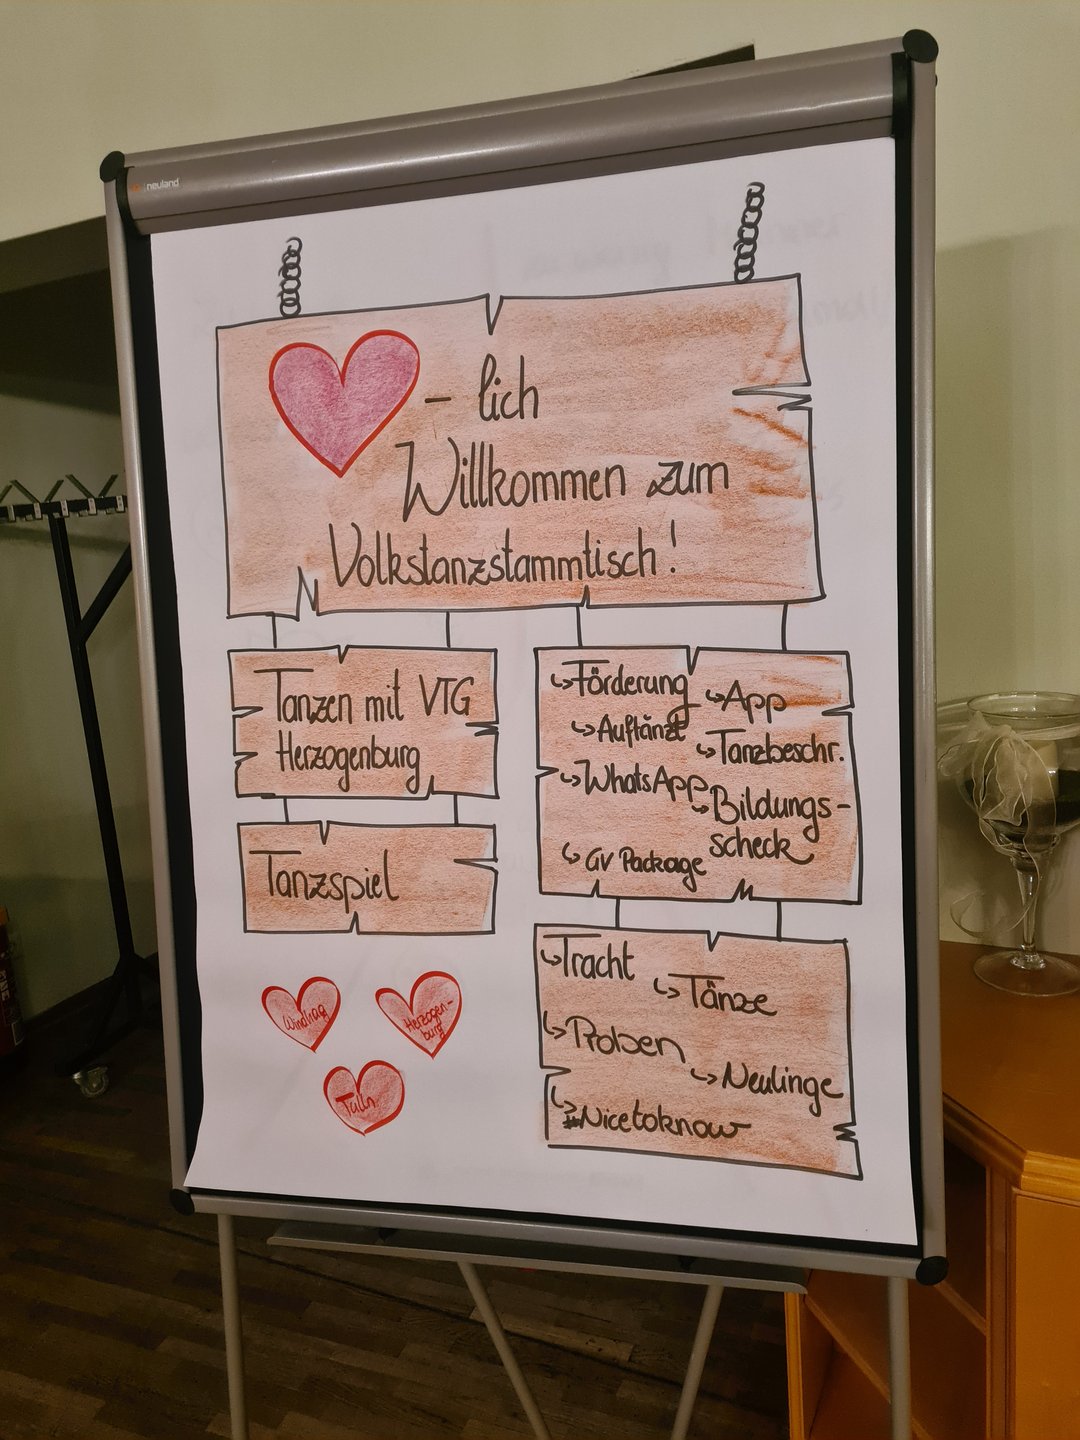 neuland
- lich
Willkommen zum
Volkstanzstammtisch!
Tanzen mit VTG
Herzogenburg
Tanzspiel
Förderung
App
Auftänzt
Tanzbeschr.
WhatsApp
Bildungs-
scheck
GV Package
Tracht
Tänze
Proben
Neulinge
#Nicetoknow
Windhag
Herzogen-
burg
Tulln